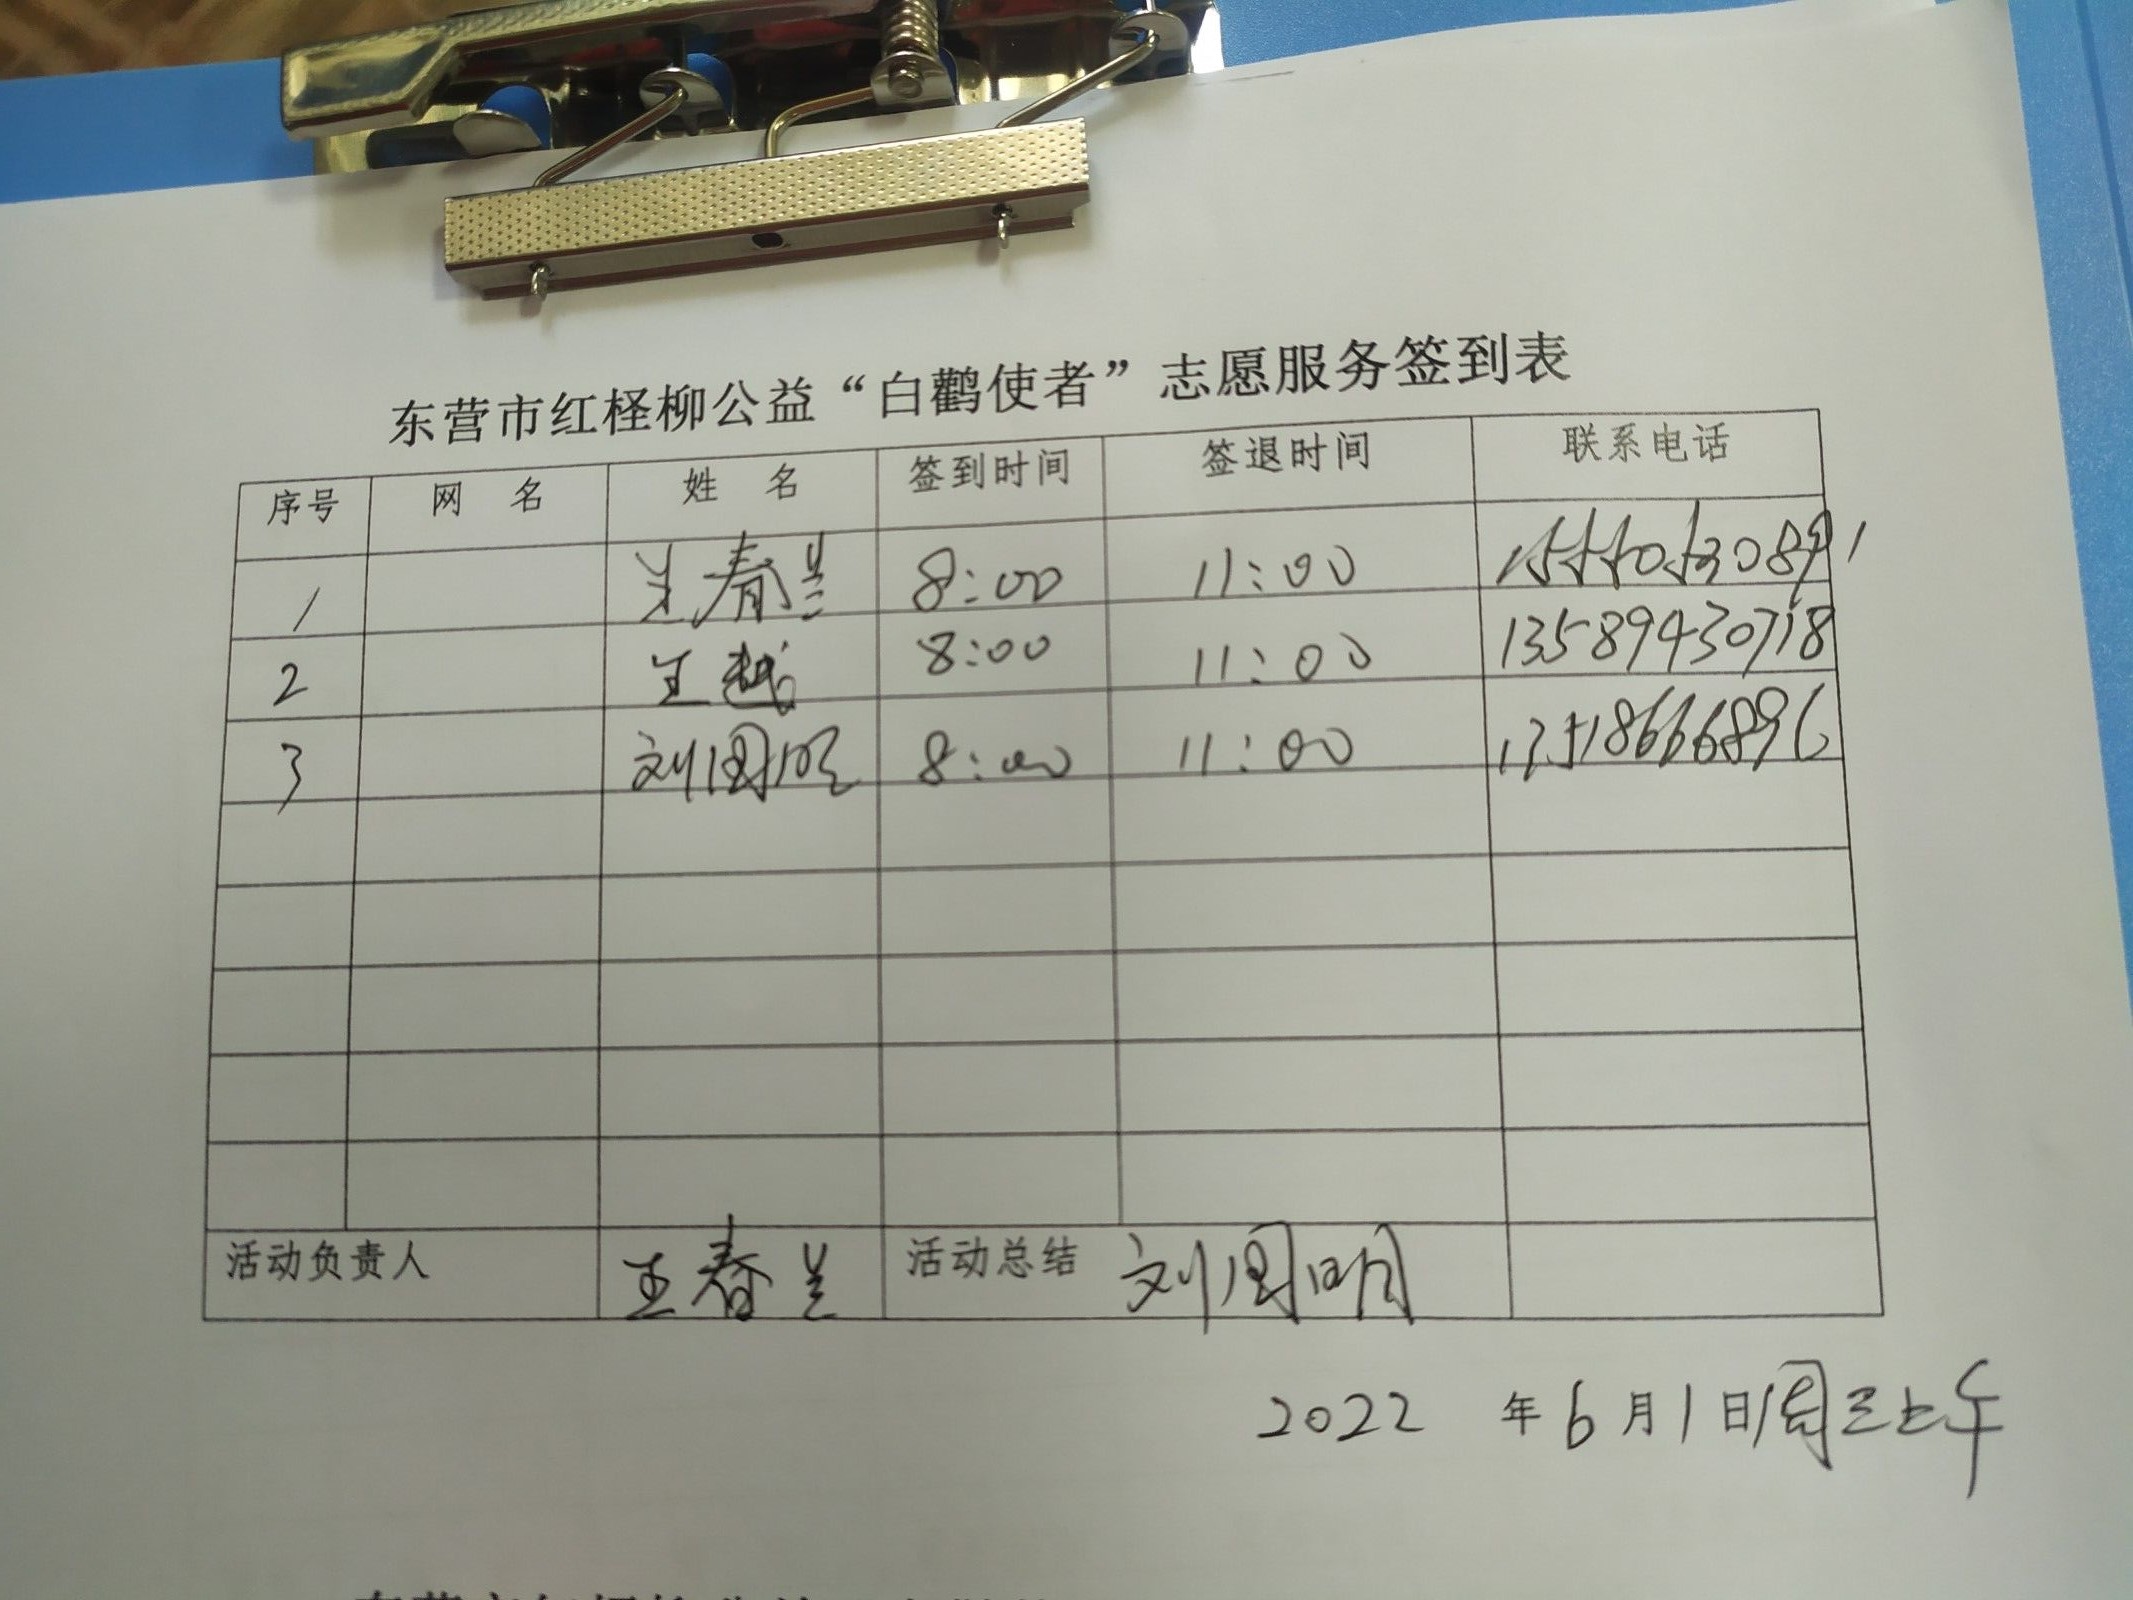 东营市红柽柳公益“白鹳使者”志愿服务签到表
序号 网 名 姓 名 签到时间 签退时间 联系电话
1 王春兰 8:00 11:00
2 王越 8:00 11:00 13589430718
3 刘国明 8:00 11:00
活动负责人 王春兰 活动总结 刘国明
2022 年 6 月 1 日 周三上午